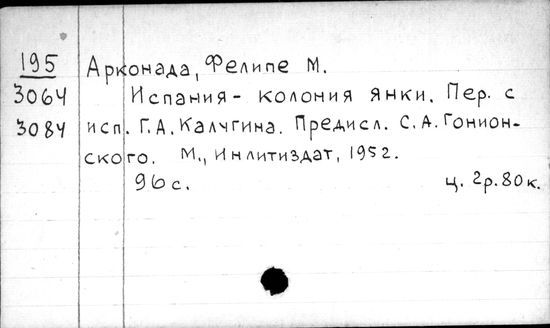 195 Арконада, Фелипе М.
3064 Испания - колония янки. Пер. с
3084 исп. Г.А. Калугина. Предисл. С.А. Гонион-
ского. М., Инлитиздат, 1952.
96 с. ц. 2р. 80к.